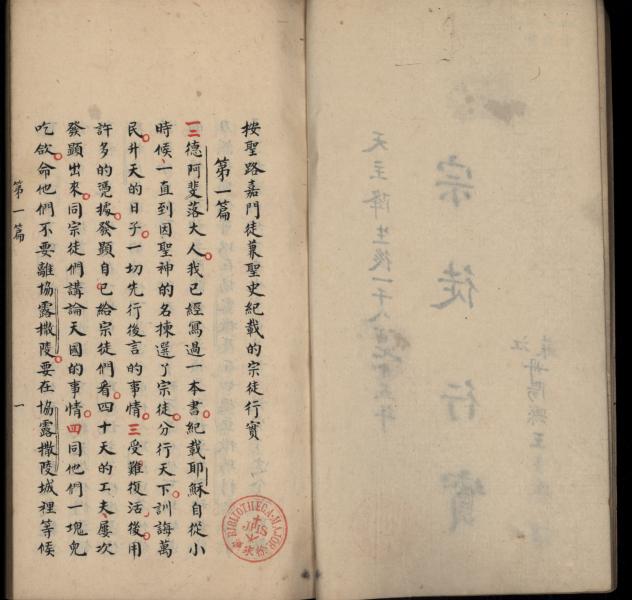 宗徒行實
天主降生後一千八百七十五年
按聖路嘉門徒兼聖史紀載的宗徒行實
第一篇
一二德阿斐落大人。我已經寫過一本書。紀載耶穌自從小
時候、一直到因聖神的名揀選了宗徒。分行天下。訓誨萬
民。升天的日子。一切先行後言的事情。三受難復活後。用
許多的憑據。發顯自己給宗徒們看。四十天的工夫、屢次
發顯出來。同宗徒們講論天國的事情。四同他們一塊兒
吃飲。命他們不要離協露撒陵。要在協露撒陵城裡等候
第一篇
一
BIBLIOTHECA MAJOR